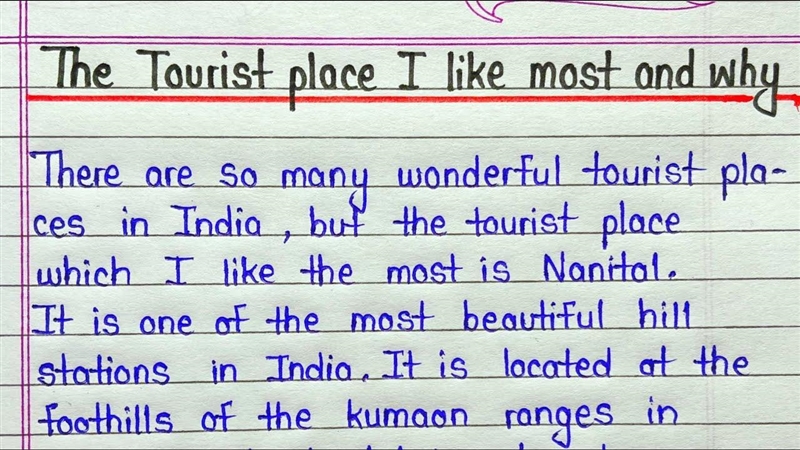 The Tourist place I like most and why
There are so many wonderful tourist pla-
ces in India, but the tourist place
which I like the most is Nanital.
It is one of the most beautiful hill
stations in India. It is located at the
foothills of the kumaon ranges in